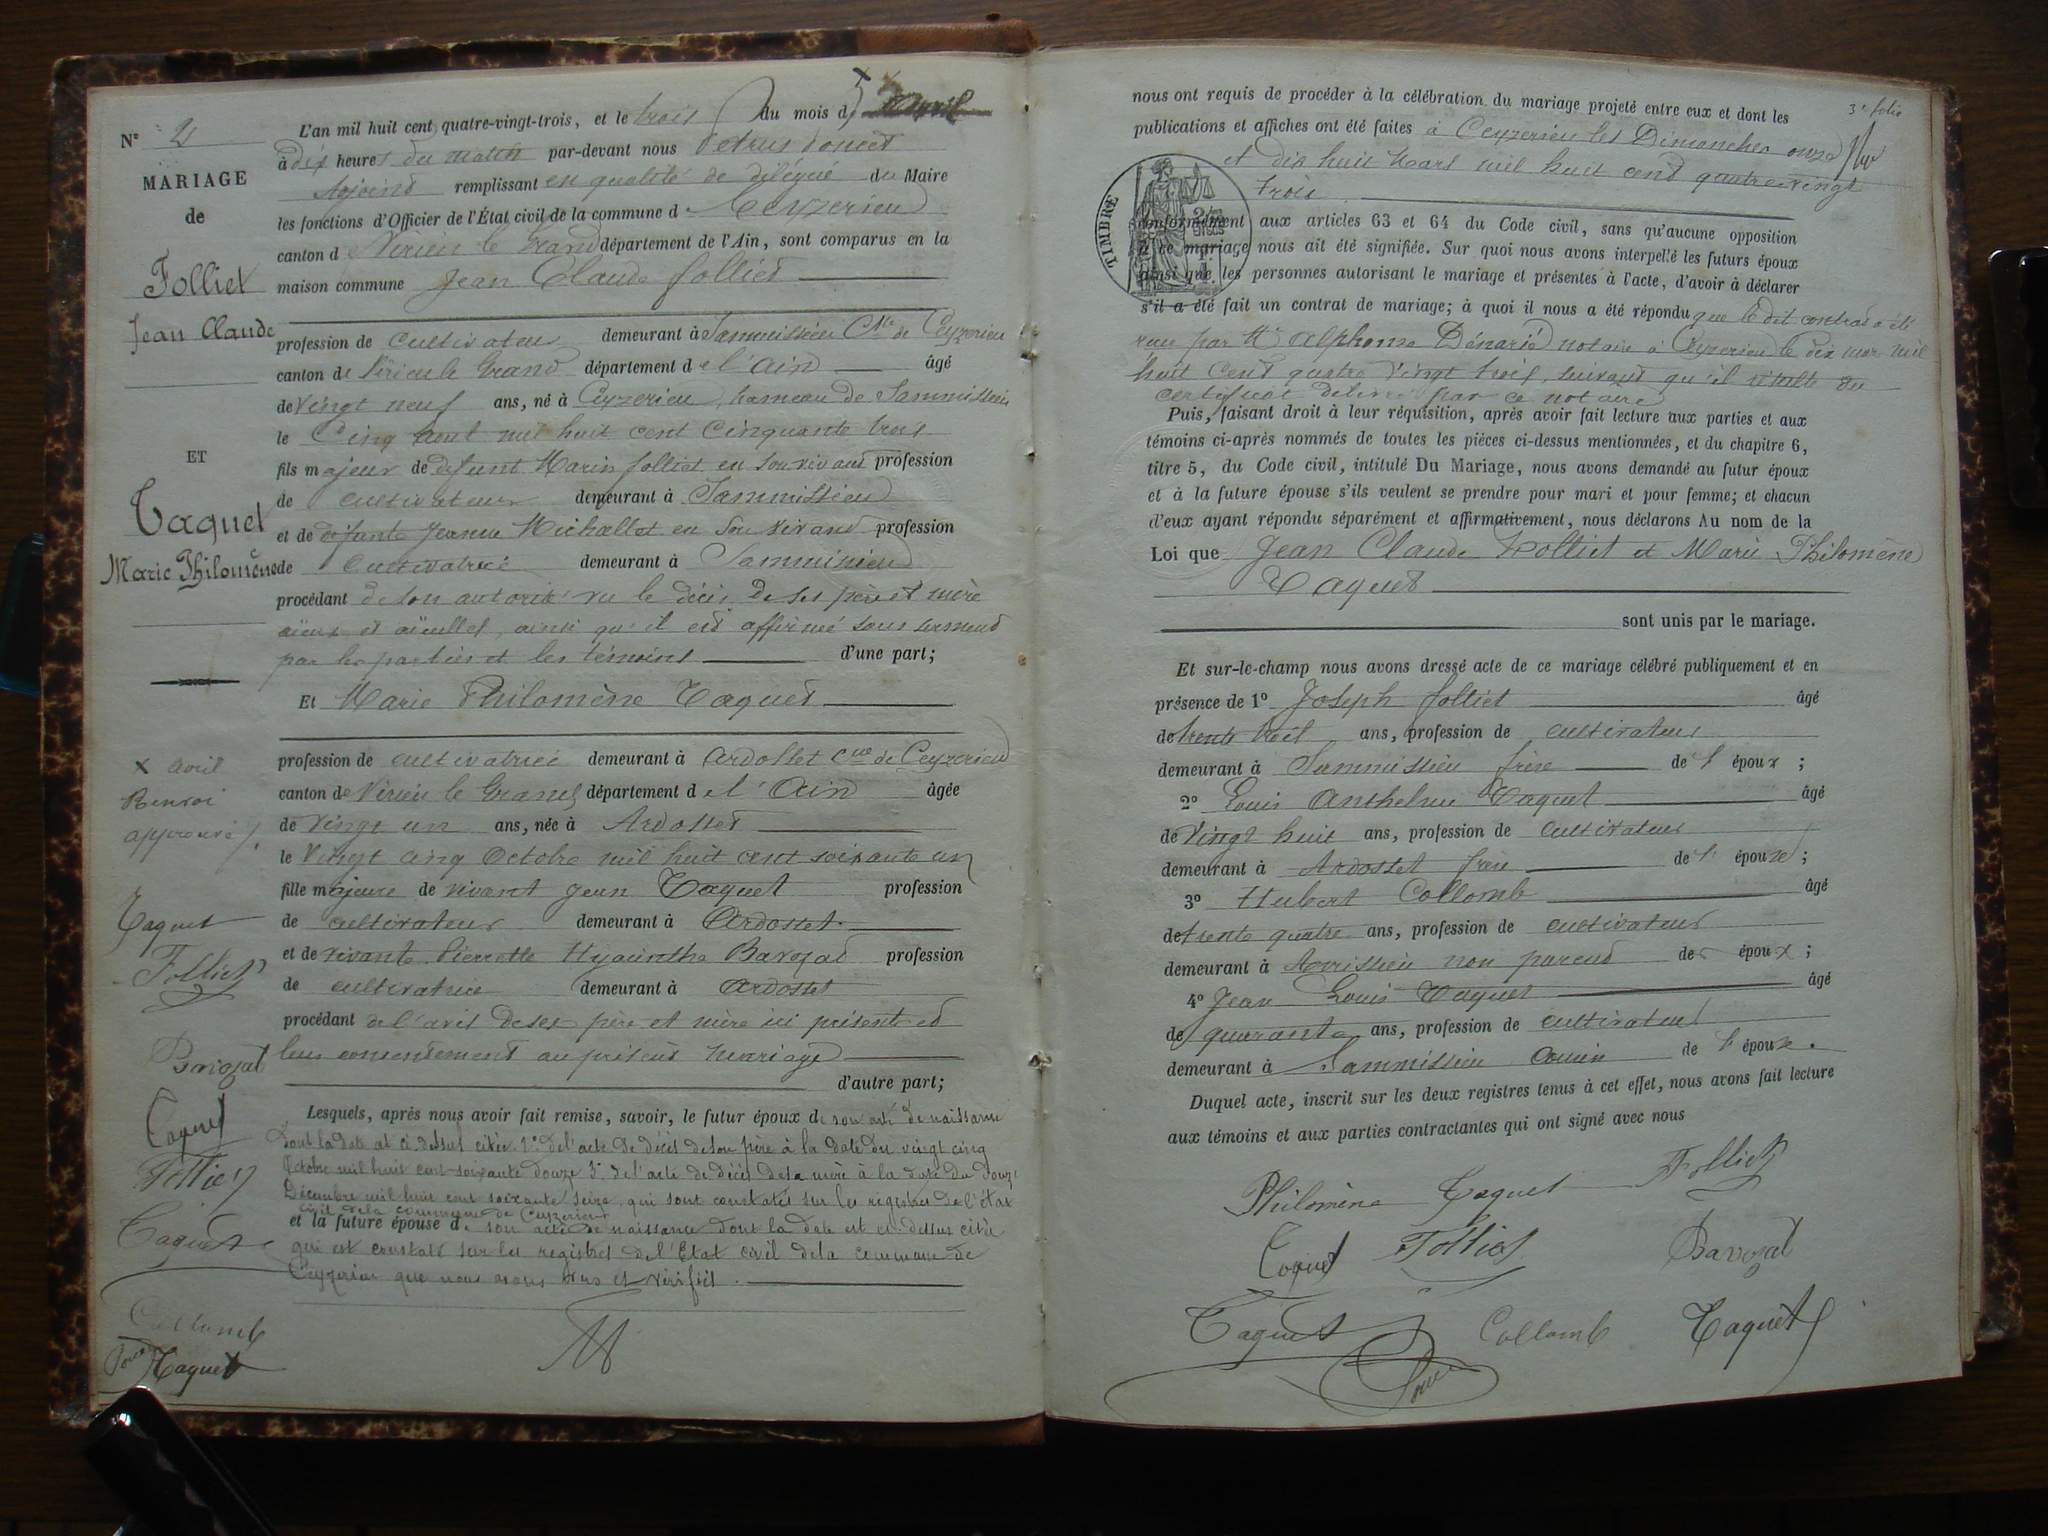 N° 2
MARIAGE
de
Folliet
Jean Claude
ET
Taquet
Marie Philomène
x avril
Renvoi
approuvé
Taquet
Folliet
Bavozat
Taquet
Folliet
Taquet
Collomb
Taquet
L'an mil huit cent quatre-vingt-trois, et le trois du mois d
à dix heures du matin par-devant nous Petrus Poncet
Adjoint remplissant en qualité de délégué du Maire
les fonctions d'Officier de l'État civil de la commune de Ceyzerieu
canton de Virieu le Grand département de l'Ain, sont comparus en la
maison commune Jean Claude folliet
profession de cultivateur demeurant à Sammissieu Cne de Ceyzerieu
canton de Virieu le Grand département de l'Ain âgé
de vingt neuf ans, né à Ceyzerieu, hameau de Sammissieu
le Cinq Aout mil huit cent cinquante trois
fils majeur de défunt Marin folliet en son vivant profession
de cultivateur demeurant à Sammissieu
et de défunte Jeanne Michallet en son vivant profession
de cultivatrice demeurant à Sammissieu
procédant de son autorité vu le décès de ses père et mère
aïeux et aïeulles, ainsi qu'il est affirmé sous serment
par les parties et les témoins d'une part;
Et Marie Philomène Taquet
profession de cultivatrice demeurant à Ardosset Cne de Ceyzerieu
canton de Virieu le Grand département de l'Ain âgée
de vingt un ans, née à Ardosset
le vingt cinq Octobre mil huit cent soixante un
fille majeure de vivant Jean Taquet profession
de cultivateur demeurant à Ardosset
et de vivante Pierrette Hyacinthe Bavozat profession
de cultivatrice demeurant à Ardosset
procédant de l'avis de ses père et mère ici présents et
leur consentement au présent mariage
d'autre part;
Lesquels, après nous avoir fait remise, savoir, le futur époux de son acte de naissance
dont la date est ci-dessus citée 2° de l'acte de décès de son père à la date du vingt cinq
Octobre mil huit cent soixante douze 3° de l'acte de décès de sa mère à la date du douze
Décembre mil huit cent soixante seize, qui sont constatés sur les registres de l'état
civil de la commune de Ceyzerieu
et la future épouse de son acte de naissance dont la date est ci-dessus citée
qui est constaté sur les registres de l'Etat civil de la commune de
Ceyzerieu que nous avons vus et vérifiés.
3e folio
nous ont requis de procéder à la célébration du mariage projeté entre eux et dont les
publications et affiches ont été faites à Ceyzerieu les Dimanches onze
et dix huit Mars mil huit cent quatre vingt
trois
TIMBRE
conformément aux articles 63 et 64 du Code civil, sans qu'aucune opposition
à ce mariage nous ait été signifiée. Sur quoi nous avons interpellé les futurs époux
ainsi que les personnes autorisant le mariage et présentes à l'acte, d'avoir à déclarer
s'il a été fait un contrat de mariage; à quoi il nous a été répondu que le dit contrat a été
reçu par Me Alphonse Dénarié notaire à Ceyzerieu le dix mars mil
huit cent quatre vingt trois, suivant qu'il résulte du
certificat délivré par ce notaire
Puis, faisant droit à leur réquisition, après avoir fait lecture aux parties et aux
témoins ci-après nommés de toutes les pièces ci-dessus mentionnées, et du chapitre 6,
titre 5, du Code civil, intitulé Du Mariage, nous avons demandé au futur époux
et à la future épouse s'ils veulent se prendre pour mari et pour femme; et chacun
d'eux ayant répondu séparément et affirmativement, nous déclarons Au nom de la
Loi que Jean Claude Folliet et Marie Philomène
Taquet
sont unis par le mariage.
Et sur-le-champ nous avons dressé acte de ce mariage célébré publiquement et en
présence de 1° Joseph folliet âgé
de trente ans, profession de cultivateur
demeurant à Sammissieu frère de l'époux;
2° Louis Anthelme Taquet âgé
de vingt huit ans, profession de cultivateur
demeurant à Ardosset frère de l'épouse;
3° Hubert Collomb âgé
de trente quatre ans, profession de cultivateur
demeurant à Avrissieu non parent des époux;
4° Jean Louis Taquet âgé
de quarante ans, profession de cultivateur
demeurant à Sammissieu cousin de l'épouse.
Duquel acte, inscrit sur les deux registres tenus à cet effet, nous avons fait lecture
aux témoins et aux parties contractantes qui ont signé avec nous
Philomène Taquet Folliet
Taquet Folliet Bavozat
Taquet Collomb Taquet